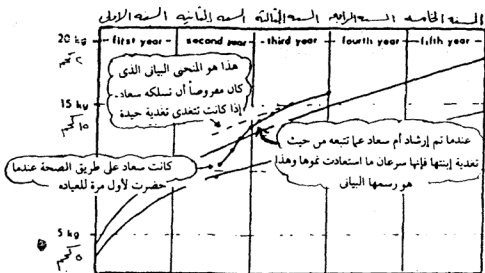 السنة الأولى السنة الثانية السنة الثالثة السنة الرابعة السنة الخامسة
first year second year third year fourth year fifth year
20 kg
٢٠ كجم
هذا هو المنحنى البيانى الذى
كان مفروضاً أن تسلكه سعاد
إذا كانت تتغذى تغذية جيدة
15 kg
١٥ كجم
عندما تم إرشاد أم سعاد عما تتبعه من حيث
تغذية إبنتها فإنها سرعان ما استعادت نموها وهذا
هو رسمها البيانى
كانت سعاد على طريق الصحة عندما
حضرت لأول مرة للعيادة
5 kg
٥ كجم